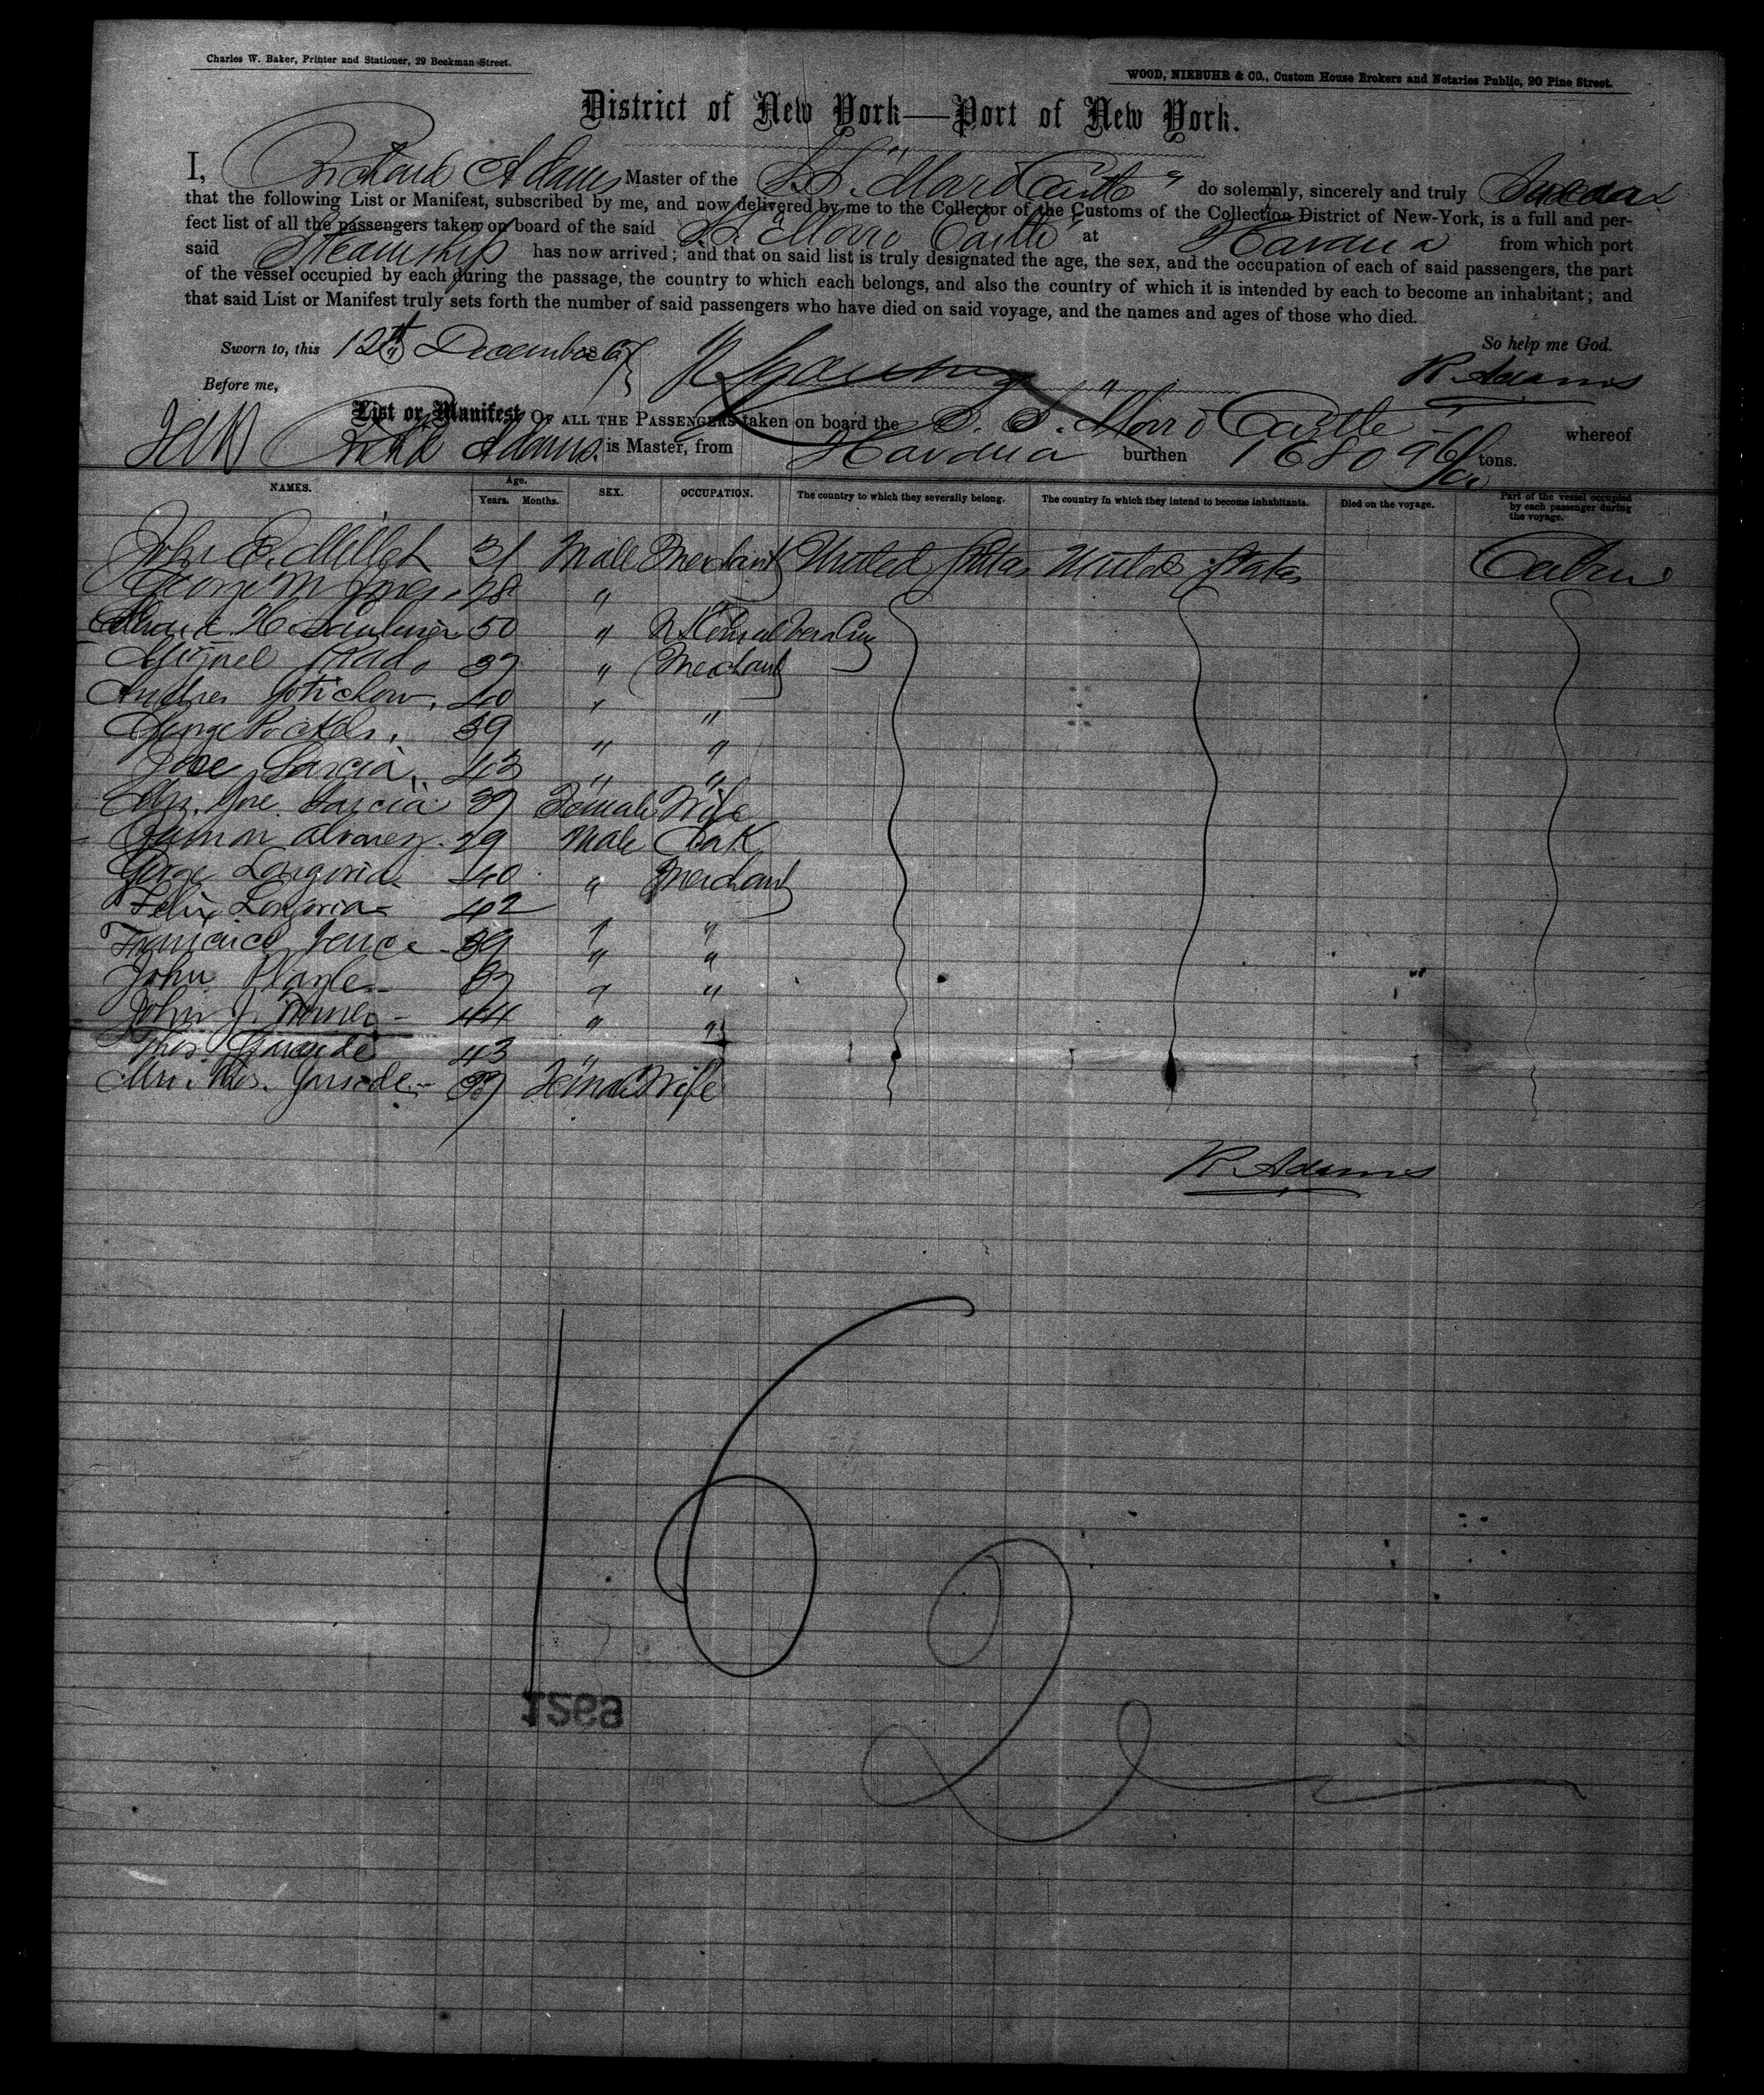 Charles W. Baker, Printer and Stationer, 29 Beekman Street.
WOOD, NIEBUHR & CO., Custom House Brokers and Notaries Public, 20 Pine Street.
District of New York—Port of New York.
I, Richard Adams Master of the S.S. "Morro Castle" do solemnly, sincerely and truly Swear
that the following List or Manifest, subscribed by me, and now delivered by me to the Collector of the Customs of the Collection District of New-York, is a full and per-
fect list of all the passengers taken on board of the said S.S. Morro Castle at Havana from which port
said Steamship has now arrived; and that on said list is truly designated the age, the sex, and the occupation of each of said passengers, the part
of the vessel occupied by each during the passage, the country to which each belongs, and also the country of which it is intended by each to become an inhabitant; and
that said List or Manifest truly sets forth the number of said passengers who have died on said voyage, and the names and ages of those who died.
Sworn to, this 12th December 67 So help me God.
Before me, R. Adams
List or Manifest OF ALL THE PASSENGERS taken on board the S. S. "Morro Castle" whereof
Adams. is Master, from Havana burthen 1680 96/100 tons.
NAMES. Age. Years. Months. SEX. OCCUPATION. The country to which they severally belong. The country in which they intend to become inhabitants. Died on the voyage. Part of the vessel occupied by each passenger during the voyage.
John E. Miller 31 Male Merchant United States United States Cabin
George M. Jones 28 " "
H. 50 " Vera Cruz
Miguel 37 " Merchant
Andres 40 " "
George 39 " "
Jose Garcia 43 " "
Mrs. Jose Garcia 37 Female Wife
Ramon Alvarez 29 Male Clerk
George Longoria 40 " Merchant
Felix Longoria 42 " "
Francisco 39 " "
John 37 " "
John J. 44 " "
Thos. Garside 43 "
Mrs. Thos. Garside 37 Female Wife
R. Adams
16
1569